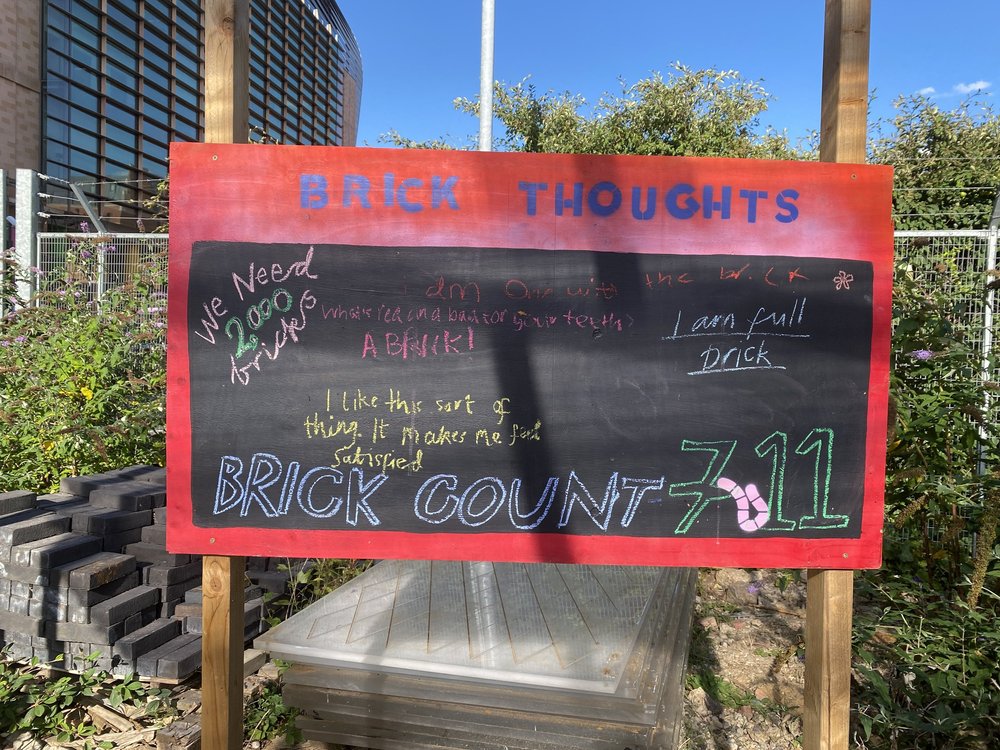 BRICK THOUGHTS
We Need
2,000
bricks
I am One with the brick
What's red and bad for your teeth?
A BRICK!
I am full
brick
I like this sort of
thing. It makes me feel
satisfied
BRICK COUNT 711